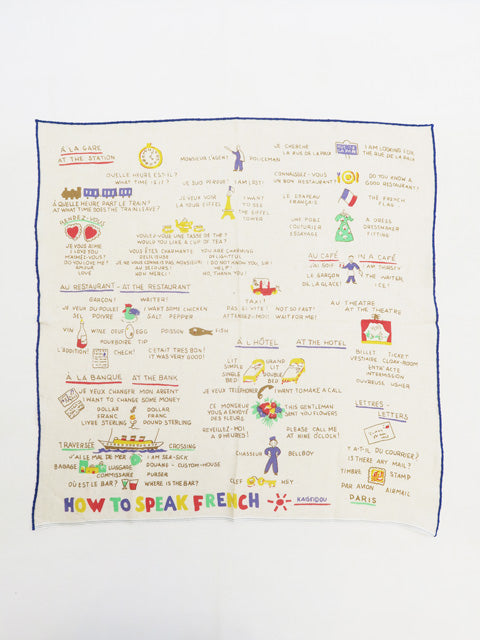 À LA GARE
AT THE STATION
QUELLE HEURE EST-IL?
WHAT TIME IS IT?
À QUELLE HEURE PART LE TRAIN?
AT WHAT TIME DOES THE TRAIN LEAVE?
MONSIEUR L'AGENT POLICEMAN
JE SUIS PERDUE! I AM LOST!
JE VEUX VOIR
LA TOUR EIFFEL
I WANT
TO SEE
THE EIFFEL
TOWER
JE CHERCHE
LA RUE DE LA PAIX
I AM LOOKING FOR
THE RUE DE LA PAIX
CONNAISSEZ-VOUS
UN BON RESTAURANT?
DO YOU KNOW A
GOOD RESTAURANT?
LE DRAPEAU
FRANÇAIS
THE FRENCH
FLAG
UNE ROBE
COUTURIER
ESSAYAGE
A DRESS
DRESSMAKER
FITTING
RENDEZ-VOUS
JE VOUS AIME
I LOVE YOU
M'AIMEZ-VOUS?
DO YOU LOVE ME?
AMOUR
LOVE
VOULEZ-VOUS UNE TASSE DE THÉ?
WOULD YOU LIKE A CUP OF TEA?
VOUS ÊTES CHARMANTE YOU ARE CHARMING
DÉLICIEUSE DELIGHTFUL
JE NE VOUS CONNAIS PAS, MONSIEUR! I DO NOT KNOW YOU, SIR!
AU SECOURS! HELP!
NON MERCI! NO, THANK YOU!
AU CAFÉ IN A CAFÉ
J'AI SOIF I AM THIRSTY
LE GARÇON THE WAITER,
DE LA GLACE! ICE!
AU RESTAURANT - AT THE RESTAURANT
GARÇON! WAITER!
JE VEUX DU POULET I WANT SOME CHICKEN
SEL POIVRE SALT PEPPER
VIN WINE OEUF EGG POISSON FISH
POURBOIRE TIP
L'ADDITION! CHECK!
C'ÉTAIT TRÈS BON!
IT WAS VERY GOOD!
TAXI!
PAS SI VITE! NOT SO FAST!
ATTENDEZ-MOI! WAIT FOR ME!
AU THÉATRE
AT THE THEATRE
BILLET TICKET
VESTIAIRE CLOAK-ROOM
ENTR'ACTE
INTERMISSION
OUVREUSE USHER
À L'HÔTEL AT THE HOTEL
LIT
SIMPLE
SINGLE
BED
GRAND
LIT
DOUBLE
BED
JE VEUX TÉLÉPHONER I WANT TO MAKE A CALL
CE MONSIEUR
VOUS A ENVOYÉ
DES FLEURS
THIS GENTLEMAN
SENT YOU FLOWERS
RÉVEILLEZ-MOI
A 9 HEURES!
PLEASE CALL ME
AT NINE O'CLOCK!
CHASSEUR BELLBOY
CLEF KEY
À LA BANQUE AT THE BANK
JE VEUX CHANGER MON ARGENT
I WANT TO CHANGE SOME MONEY
DOLLAR DOLLAR
FRANC FRANC
LIVRE STERLING POUND STERLING
TRAVERSÉE CROSSING
J'AI LE MAL DE MER I AM SEA-SICK
BAGAGE LUGGAGE DOUANE - CUSTOM-HOUSE
COMMISSAIRE PURSER
OÙ EST LE BAR? WHERE IS THE BAR?
LETTRES -
LETTERS
Y A-T-IL DU COURRIER?
IS THERE ANY MAIL?
TIMBRE STAMP
PAR AVION AIRMAIL
HOW TO SPEAK FRENCH
KAISFIDOU PARIS